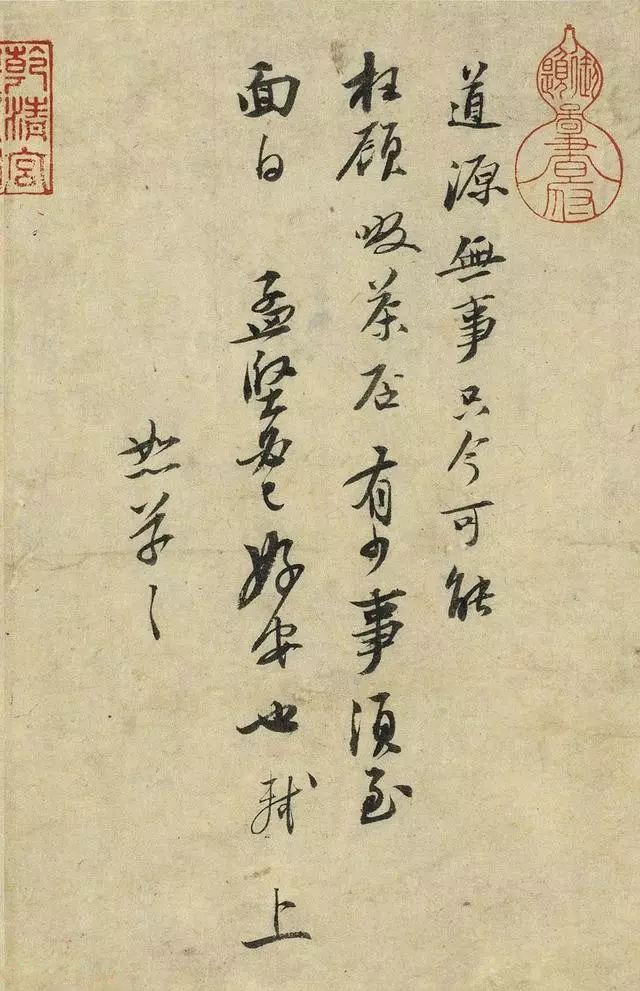 御題
啚書府
道源無事只今可能
枉顧啜茶否有少事須至
面白 孟堅必已好安也 軾上
恕草〻
乾清宮